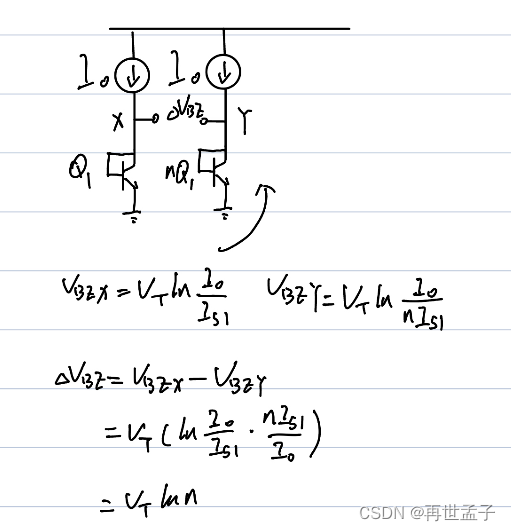 I₀ I₀
X ΔVBZ Y
Q₁ nQ₁
VBZX = VT ln I₀/IS1 VBZY = VT ln I₀/nIS1
ΔVBZ = VBZX − VBZY
= VT ( ln I₀/IS1 · nIS1/I₀ )
= VT ln n
CSDN @再世孟子